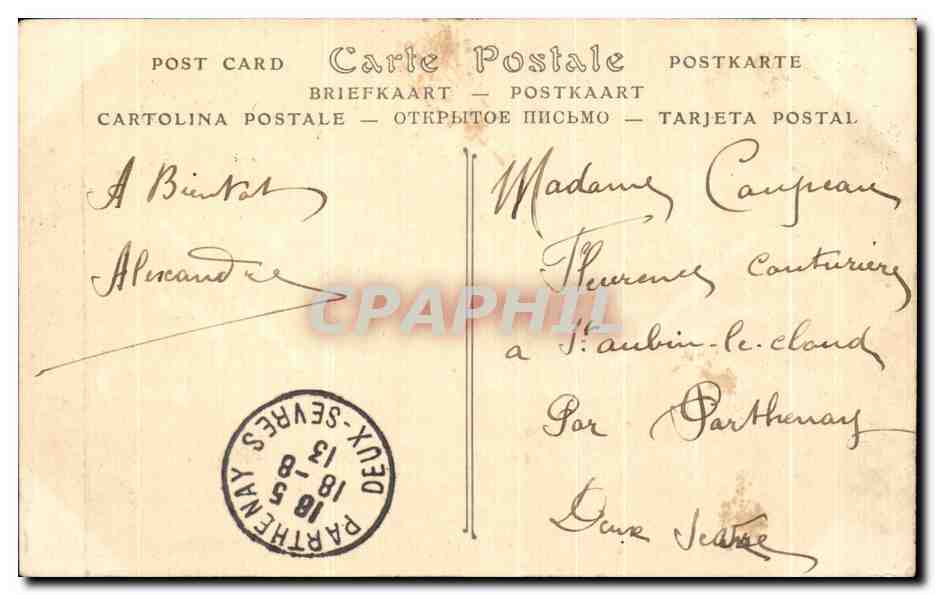 POST CARD Carte Postale POSTKARTE
BRIEFKAART — POSTKAART
CARTOLINA POSTALE — ОТКРЫТОЕ ПИСЬМО — TARJETA POSTAL
A Bientot
Alexandre
Madame Coupeau
Fleurence couturière
a St aubin-le-cloud
Par Parthenay
Deux Sèvre
CPAPHIL
PARTHENAY
16 5
18 - 8
13
DEUX-SEVRES